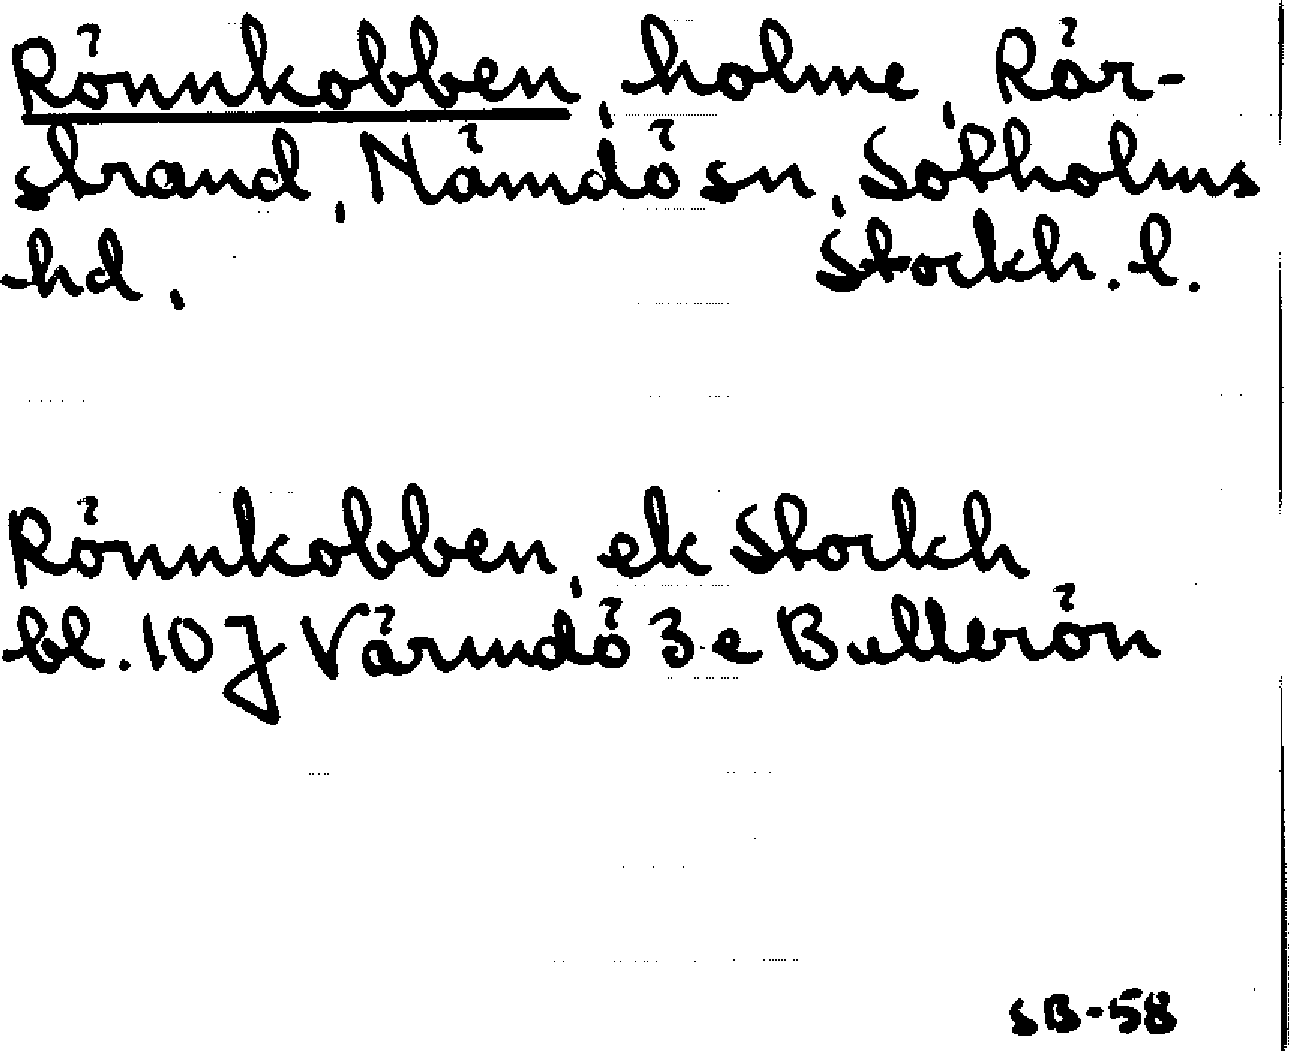 Rönnkobben, holme, Rör-
strand, Nämdö sn, Sotholms
hd, Stockh. l.
Rönnkobben, ek Stockh
bl. 10J Värmdö 3 e Bullerön
SB-58